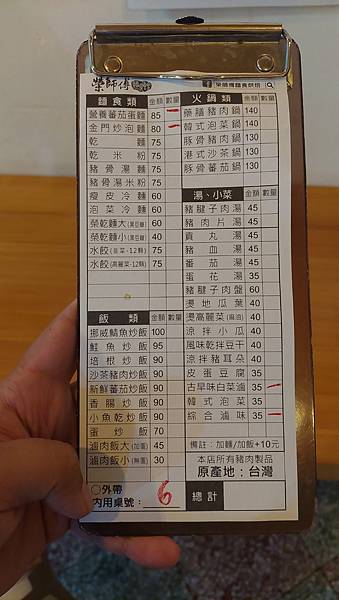 榮師傅
榮師傅麵食烘焙
麵食類 金額 數量
營養蕃茄蛋麵 85
金門炒泡麵 80
乾麵 75
乾米粉 75
豬骨湯麵 75
豬骨湯米粉 75
瘦皮冷麵 60
泡菜冷麵 60
榮乾麵大(黑豆麵) 60
榮乾麵小(黑豆麵) 40
水餃(韭菜-12顆) 75
水餃(高麗菜-12顆) 75
飯類 金額 數量
挪威鯖魚炒飯 100
鮭魚炒飯 95
培根炒飯 90
沙茶豬肉炒飯 90
新鮮蕃茄炒飯 90
香腸炒飯 90
小魚乾炒飯 90
蛋炒飯 70
滷肉飯大(加蛋) 45
滷肉飯小(無蛋) 30
○外帶
內用桌號：6
火鍋類 金額 數量
藥膳豬肉鍋 140
韓式泡菜鍋 140
豚骨豬肉鍋 140
港式沙茶鍋 140
豚骨蕃茄鍋 140
湯、小菜
豬腱子肉湯 45
豬肉片湯 45
貢丸湯 45
豬血湯 45
蕃茄湯 45
蛋花湯 35
豬腱子肉盤 60
燙地瓜葉 40
燙高麗菜(麻油) 40
涼拌小瓜 40
風味乾拌豆干 40
涼拌豬耳朵 40
皮蛋豆腐 35
古早味白菜滷 35
韓式泡菜 35
綜合滷味 35
備註：加麵/加飯+10元
本店所有豬肉製品
原產地：台灣
總計